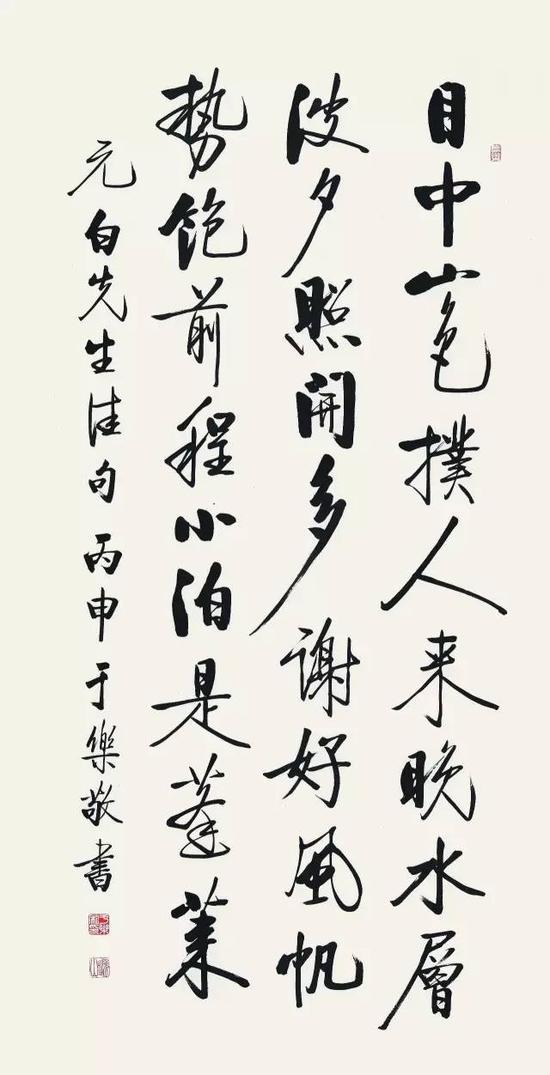 目中山色撲人来晚水層
波夕照開多謝好風帆
勢飽前程小泊是蓬莱
元白先生佳句 丙申于樂敬書